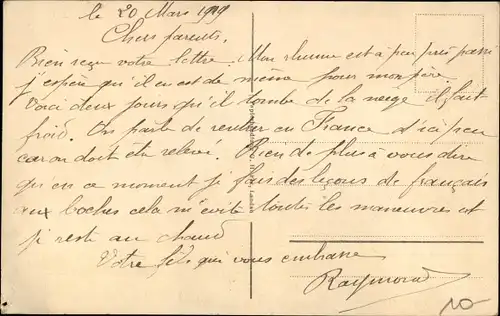 le 20 Mars 1919
Chers parents.
Bien reçu votre lettre. Mon rhume est à peu près passé
j'espère qu'il en est de même pour mon père.
Voici deux jours qu'il tombe de la neige il fait
froid. On parle de rentrer en France d'ici peu
car on doit être relevé. Rien de plus à vous dire
qu'en ce moment je fais des leçons de français
aux boches cela m'évite toutes les manœuvres et
je reste au chaud
Votre fils qui vous embrasse
Raymond
10